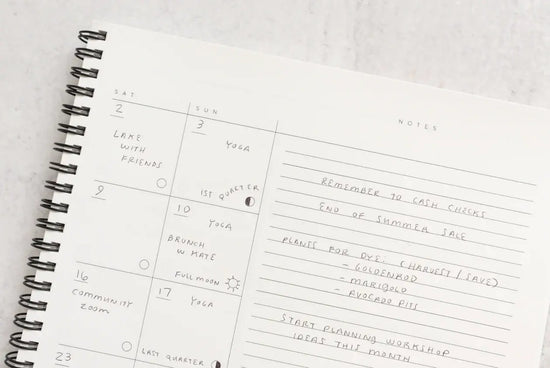 SAT
SUN
NOTES
2
LAKE
WITH
FRIENDS
3
YOGA
1ST QUARTER
9
10
YOGA
BRUNCH
W KATE
FULL MOON
16
COMMUNITY
ZOOM
17
YOGA
LAST QUARTER
23
REMEMBER TO CASH CHECKS
END OF SUMMER SALE
PLANTS FOR DYE: (HARVEST/SAVE)
- GOLDENROD
- MARIGOLD
- AVOCADO PITS
START PLANNING WORKSHOP
IDEAS THIS MONTH